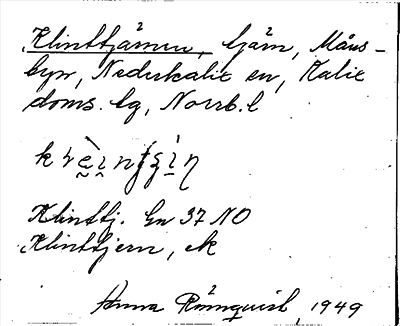 Klinttjärnen, tjärn, Måns-
byn, Nederkalix sn, Kalix
doms. lg, Norrb. l
Klinttj. Gn 37 NO
Klinttjern, ek
Anna Rönnqvist, 1949